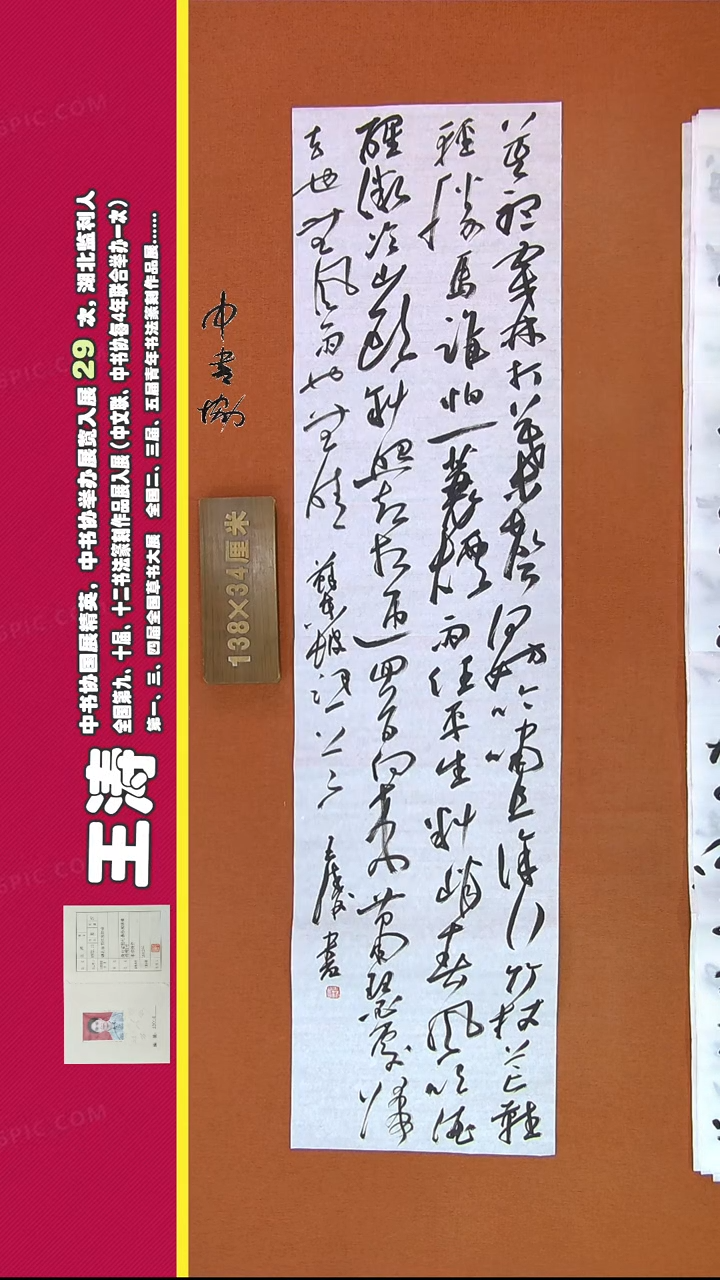 王涛
中书协国展精英，中书协举办展览入展 29 次，湖北监利人
全国第九、十届、十二书法篆刻作品展入展（中文联、中书协每4年联合举办一次）
第一、三、四届全国草书大展 全国二、三届、五届青年书法篆刻作品展......
中书协
138×34厘米
莫聽穿林打葉聲何妨吟嘯且徐行竹杖芒鞋
輕勝馬誰怕一蓑煙雨任平生料峭春風吹酒
醒微冷山頭斜照却相迎回首向來蕭瑟處歸
去也無風雨也無晴 蘇東坡詞 王濤書
GPIC.COM